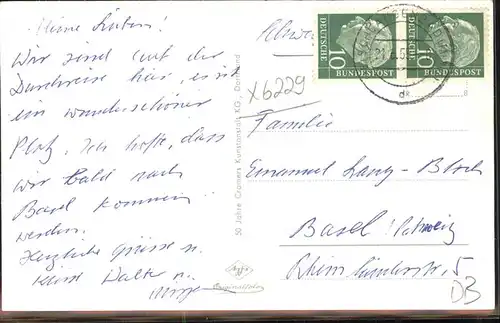 Meine Lieben!
Wir sind auf der
Durchreise hier, es ist
ein wunderschöner
Platz. Ich hoffe, dass
wir bald nach
Basel kommen
werden.
Herzliche Grüsse u.
Küsse Walter u.
50 Jahre Cramers Kunstanstalt KG., Dortmund
Agfa
Originalfoto
DEUTSCHE
10
BUNDESPOST
DEUTSCHE
10
BUNDESPOST
X6229
Familie
Emanuel
Basel
5
DB